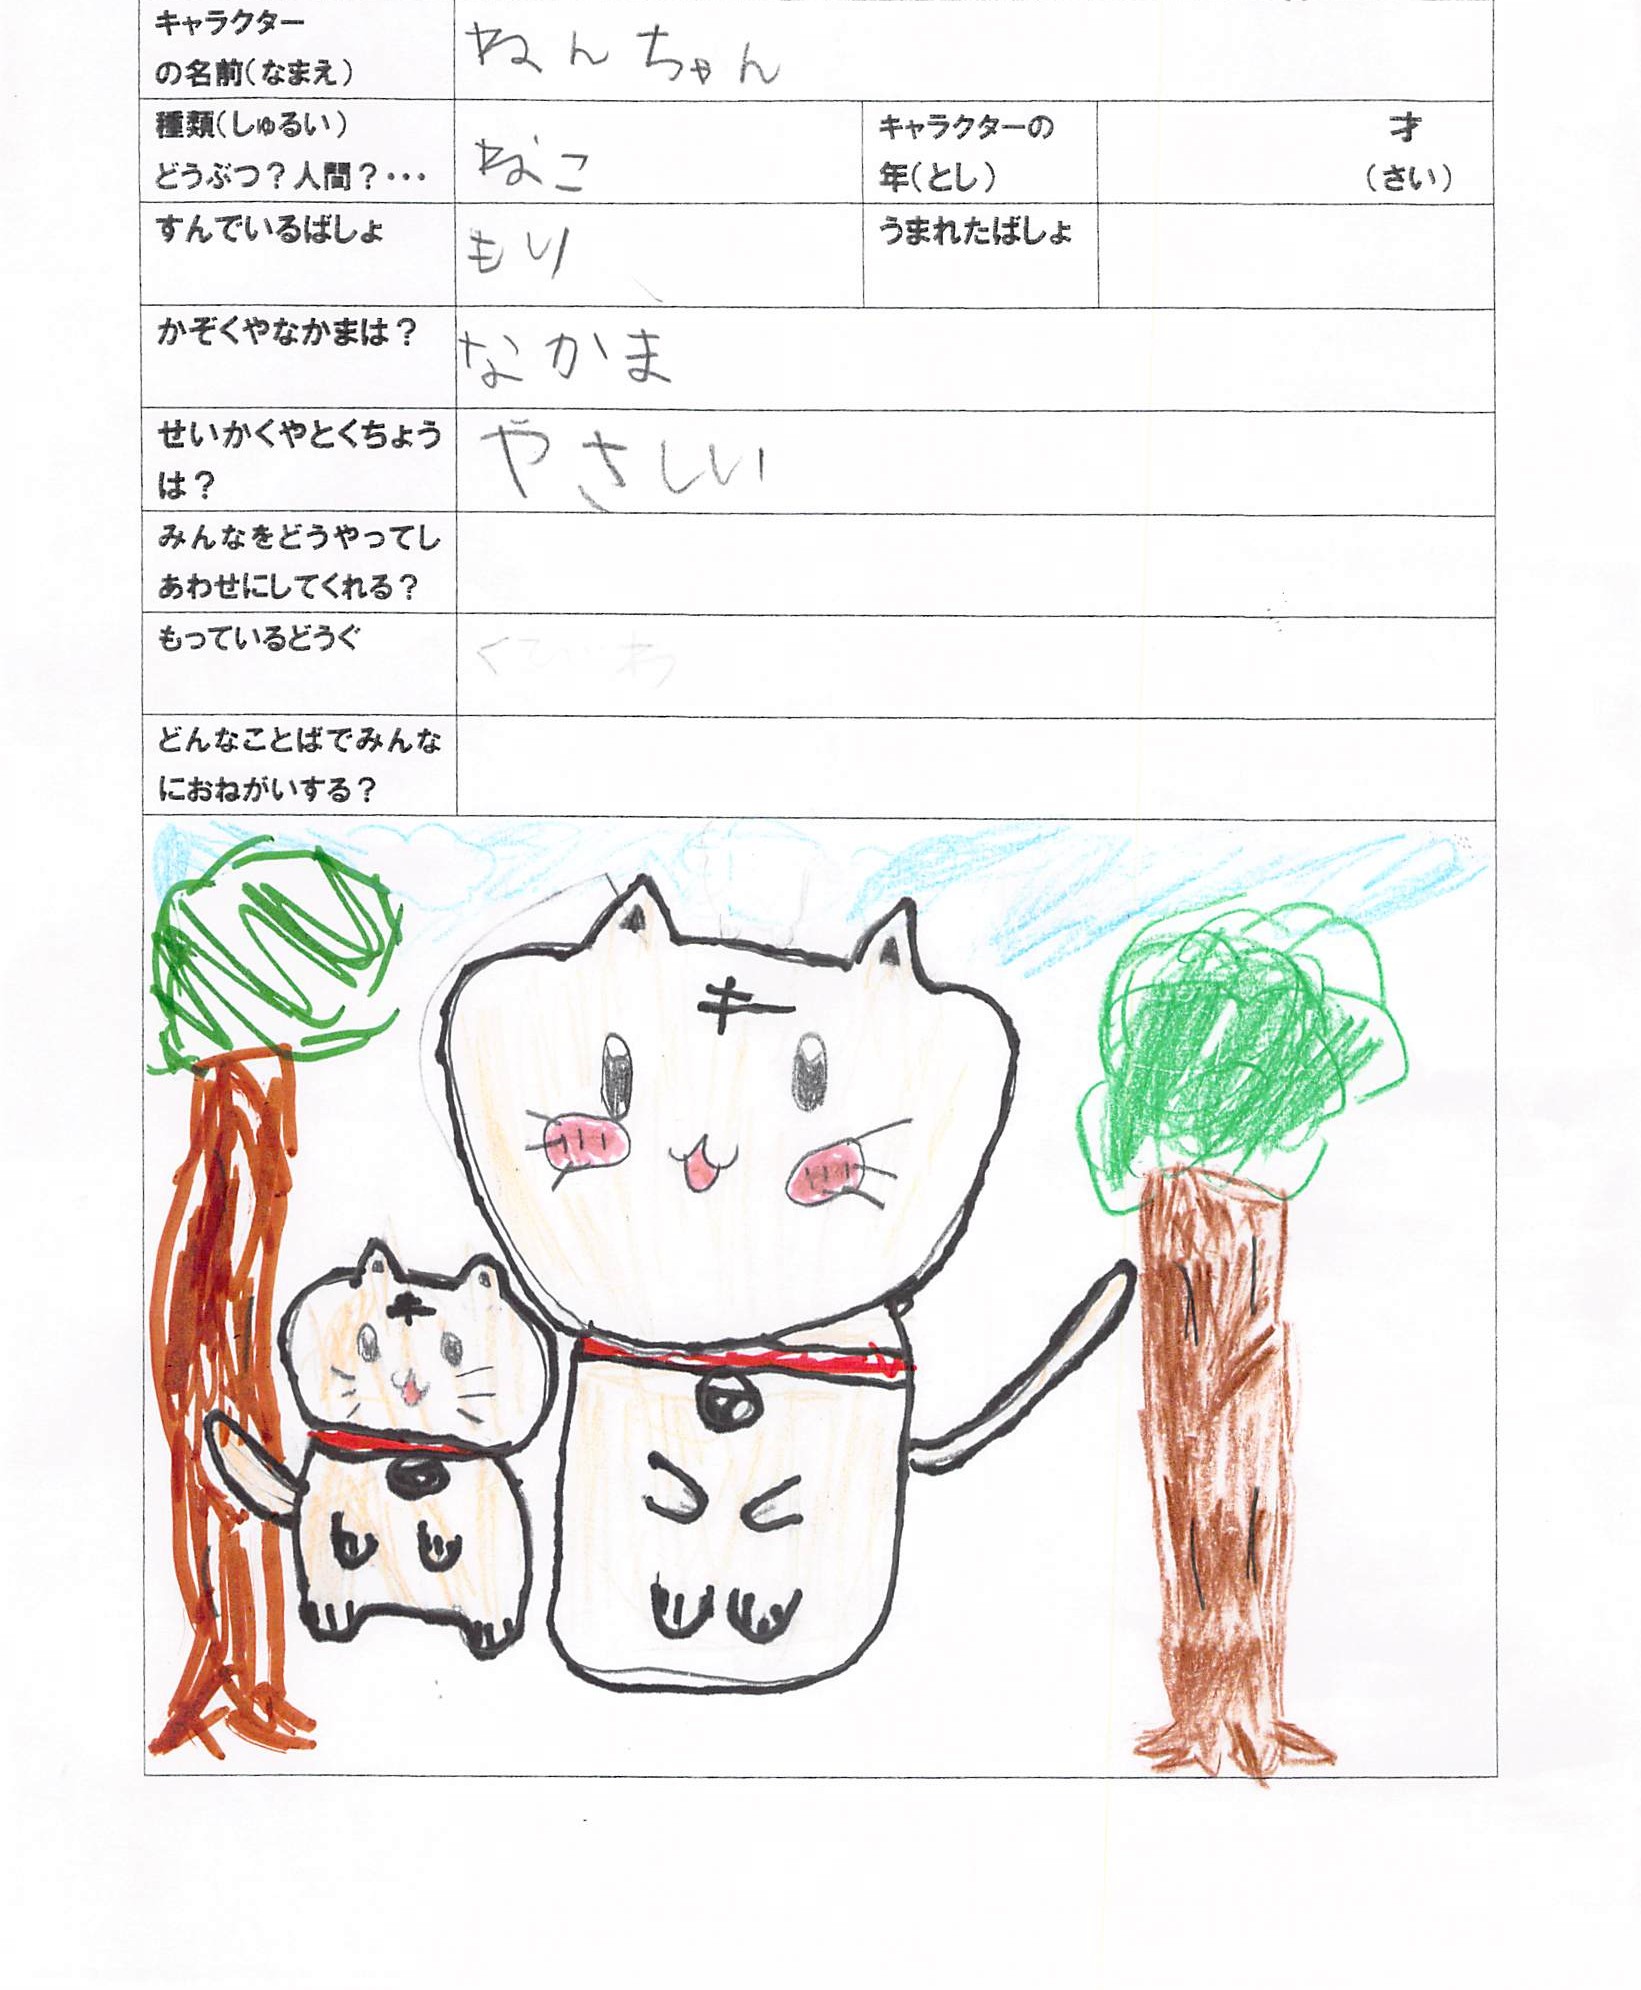 キャラクター
の名前(なまえ)
ねんちゃん
種類(しゅるい)
どうぶつ?人間?・・・
ねこ
キャラクターの
年(とし)
才
(さい)
すんでいるばしょ
もり
うまれたばしょ
かぞくやなかまは?
なかま
せいかくやとくちょう
は?
やさしい
みんなをどうやってし
あわせにしてくれる?
もっているどうぐ
くびわ
どんなことばでみんな
におねがいする?